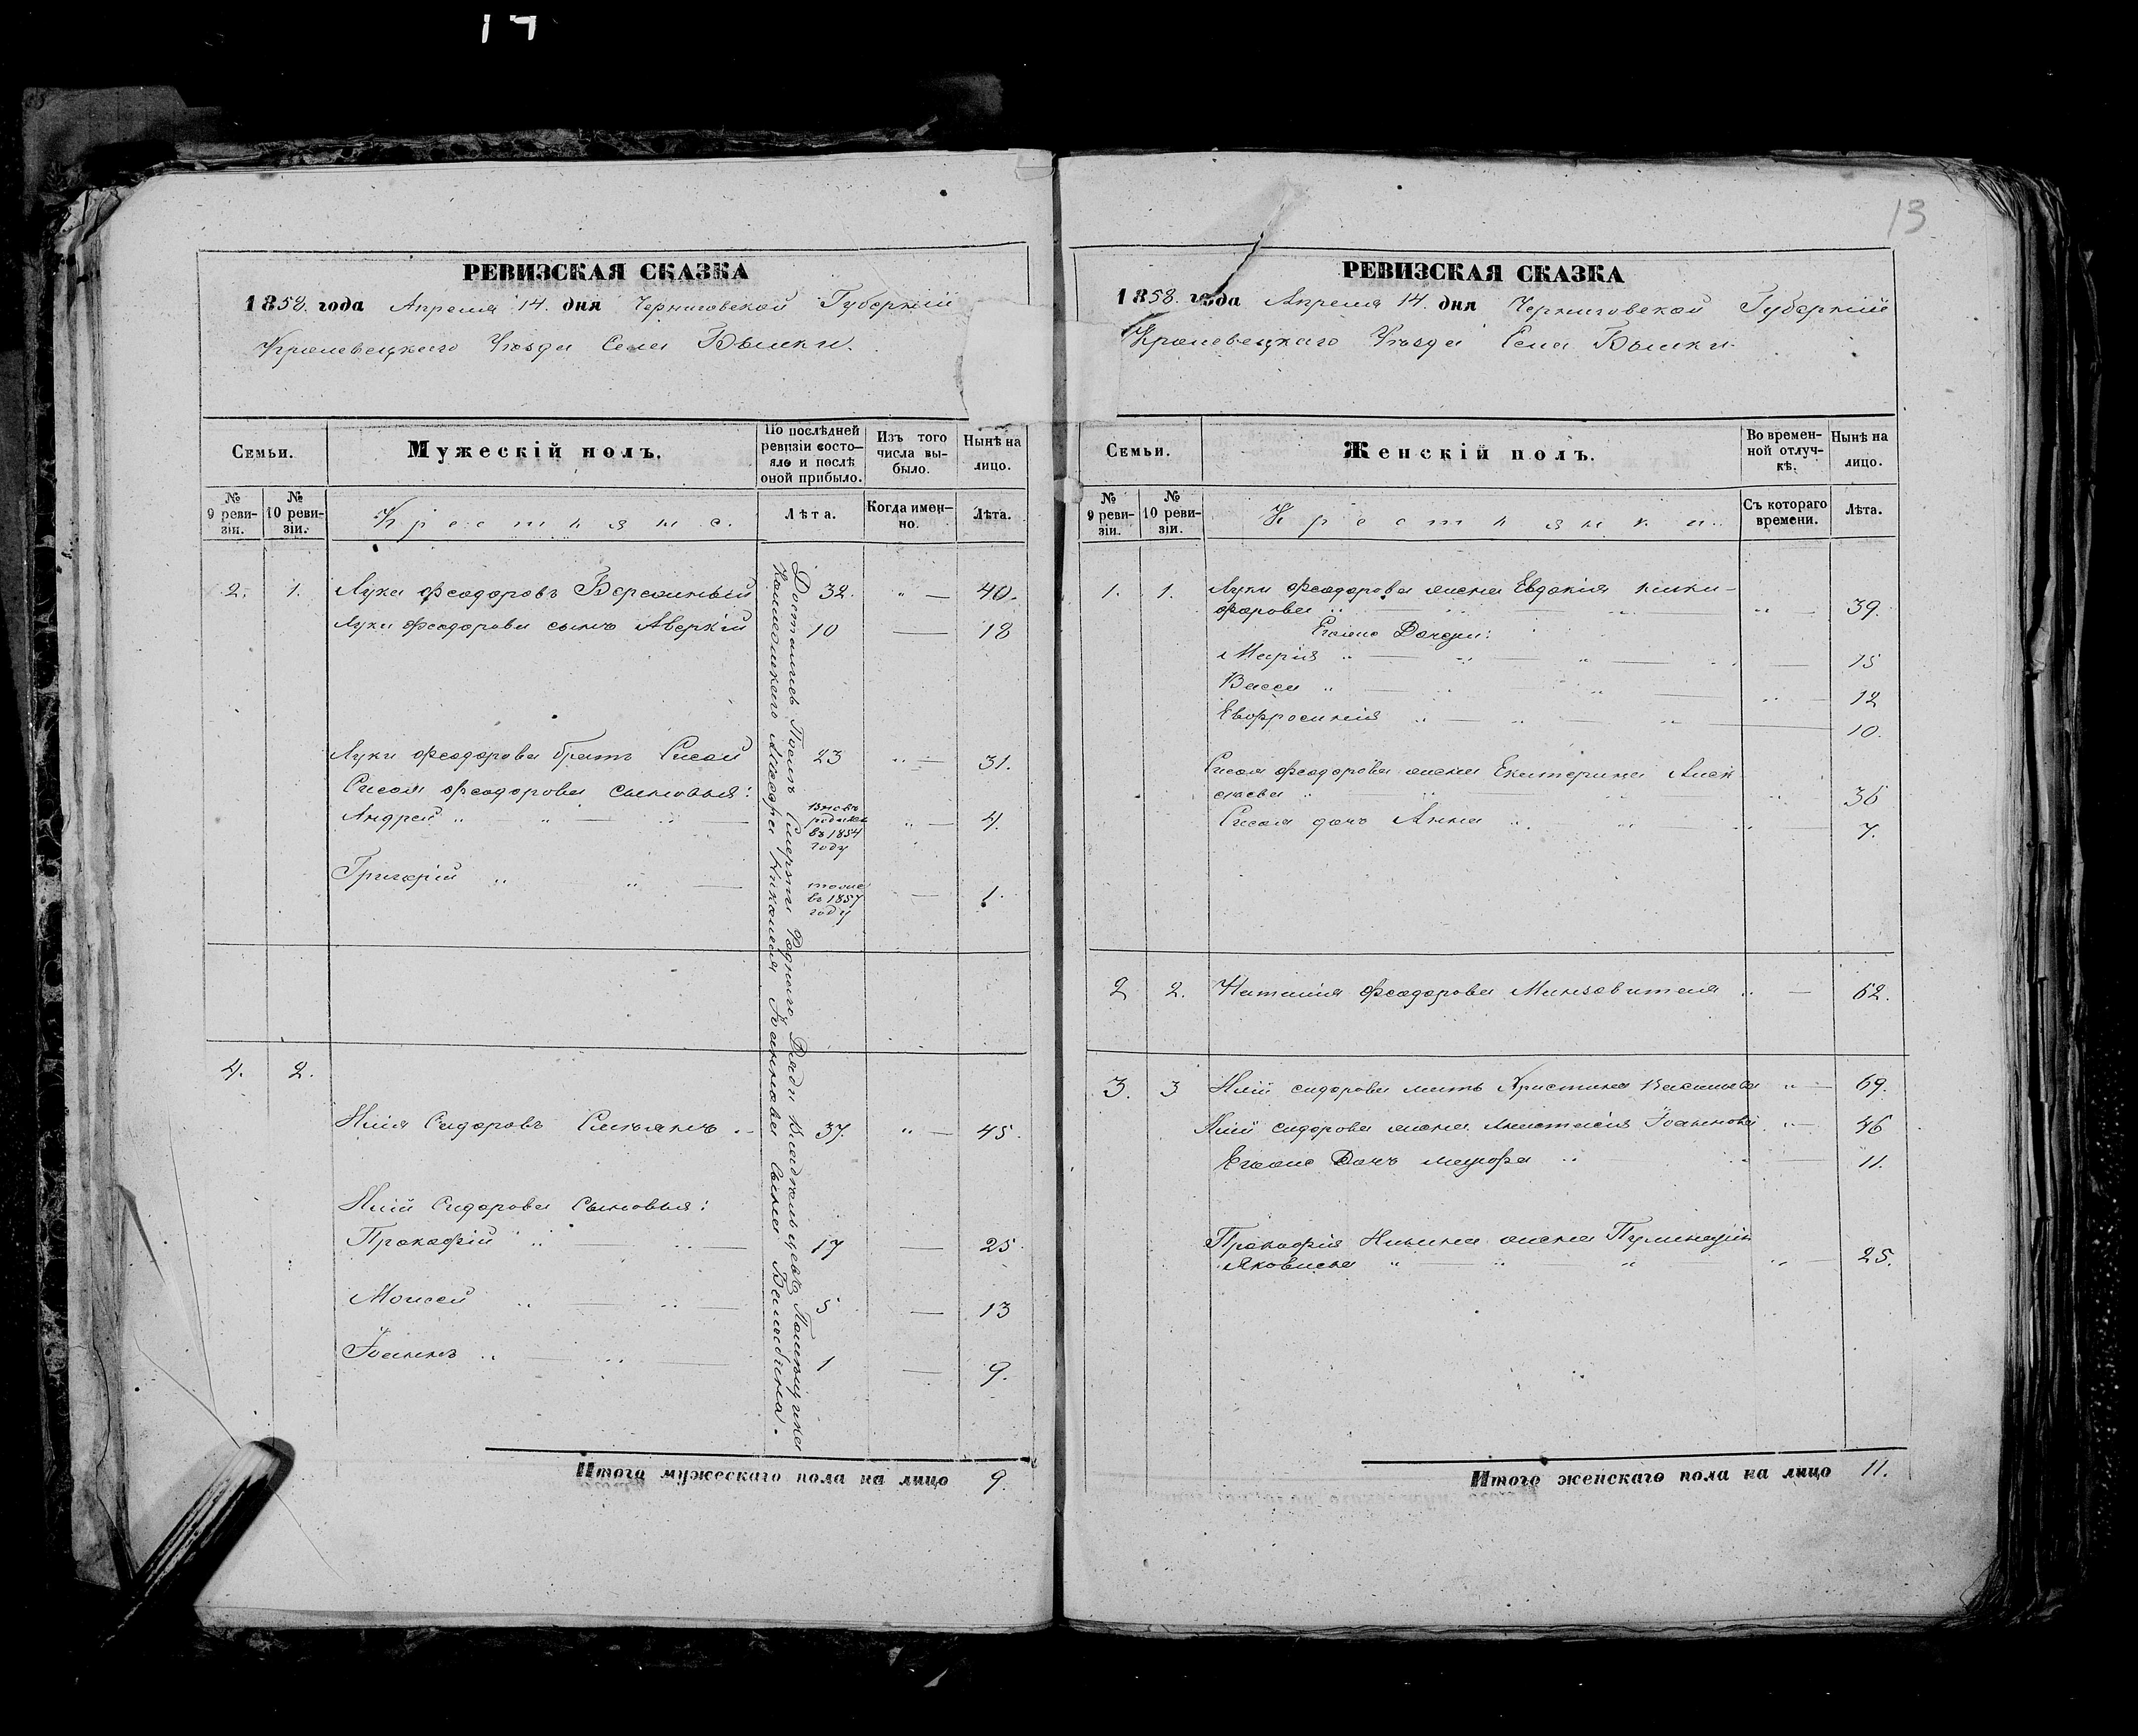 14
РЕВИЗСКАЯ СКАЗКА
1858. года Апреля 14. дня Черниговской Губерніи
Кролевецкаго Уѣзда Села Бѣлки.
Семьи.
Мужескій полъ.
По послѣдней ревизіи состояло и послѣ оной прибыло.
Изъ того числа выбыло.
Нынѣ на лицо.
№ 9 ревизіи.
№ 10 ревизіи.
Крестьяне.
Лѣта.
Когда именно.
Лѣта.
2. 1. Лука Феодоровъ 32. „ — 40.
Луки Феодорова сынъ Аверкій 10 — 18
Луки Феодорова братъ Сисой 23 „ — 31.
Сисоя Феодорова сыновья:
Андрей „ — „ — „ — вновь рожден въ 1854 году „ — 4.
Григорій „ „ — тоже въ 1857 году — 1.
4. 2.
Илія Сидоровъ 37. „ — 45.
Иліи Сидорова Сыновья:
Прокофій „ — „ — 17 — 25.
Моисей „ — „ — 5 — 13
Іоаннъ „ — „ — 1 — 9.
Достались Послѣ Смерти Роднаго Дяди Владѣльцевъ Помѣщика
Коллежскаго Николая Іоаннова Сына
Итого мужескаго пола на лицо 9.
13
РЕВИЗСКАЯ СКАЗКА
1858. года Апреля 14. дня Черниговской Губерніи
Кролевецкаго Уѣзда Села Бѣлки.
Семьи.
Женскій полъ.
Во временной отлучкѣ.
Нынѣ на лицо.
№ 9 ревизіи.
№ 10 ревизіи.
Крестьянки.
Съ котораго времени.
Лѣта.
1. 1. Луки Феодорова жена Евдокія Ники-
форова „ „ — 39.
Егоже Дочери:
Марія „ — „ — „ — 15
Васса „ — „ — „ — 12
Евфросинія „ — „ — „ — 10.
Сисоя Феодорова жена Екатерина Алек
сѣева „ — „ — 36
Сисоя дочь Анна „ „ 7.
2 2. Наталія Феодорова „ — 62.
3. 3 Иліи Сидорова мать Христина Васильева „ — 69.
Иліи Сидорова жена Анастасія Іоаннова „ — 46
Егоже Дочь „ „ — 11.
Прокофія Ильина жена
Яковлева „ — „ — „ „ — 25.
Итого женскаго пола на лицо 11.